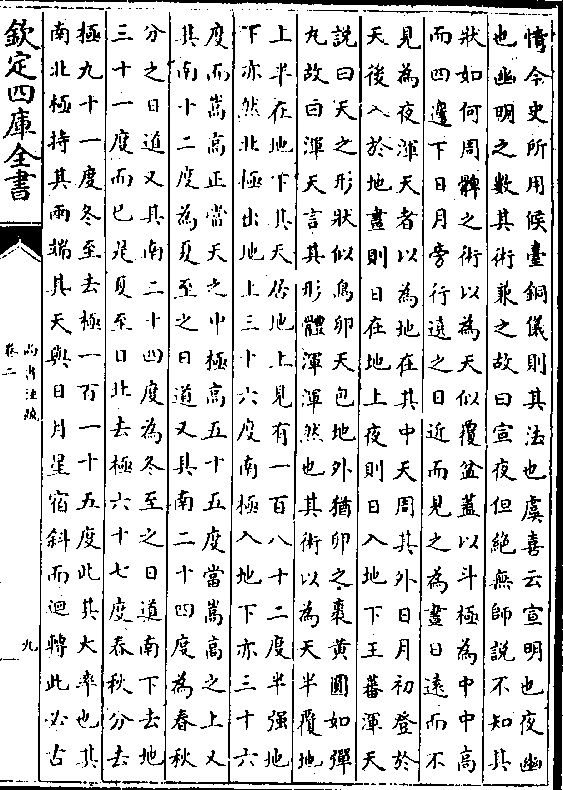 情今史所用候臺銅儀則其法也虞喜云宣明也夜幽
也幽明之數其術兼之故曰宣夜但絶無師說不知其
狀如何周髀之術以為天似覆盆蓋以斗極為中中高
而四邊下日月旁行遶之日近而見之為晝日遠而不
見為夜渾天者以為地在其中天周其外日月初登於
天後入於地晝則日在地上夜則日入地下王蕃渾天
說曰天之形狀似鳥卵天包地外猶卵之裹黃圓如彈
丸故曰渾天言其形體渾渾然也其術以為天半覆地
上半在地下其天居地上見有一百八十二度半强地
下亦然北極出地上三十六度南極入地下亦三十六
度而嵩高正當天之中極高五十五度當嵩高之上又
其南十二度為夏至之日道又其南二十四度為春秋
分之日道又其南二十四度為冬至之日道南下去地
三十一度而已是夏至日北去極六十七度春秋分去
極九十一度冬至去極一百一十五度此其大率也其
南北極持其兩端其天與日月星宿斜而迴轉此必古
欽定四庫全書
尚書注疏
卷二
九